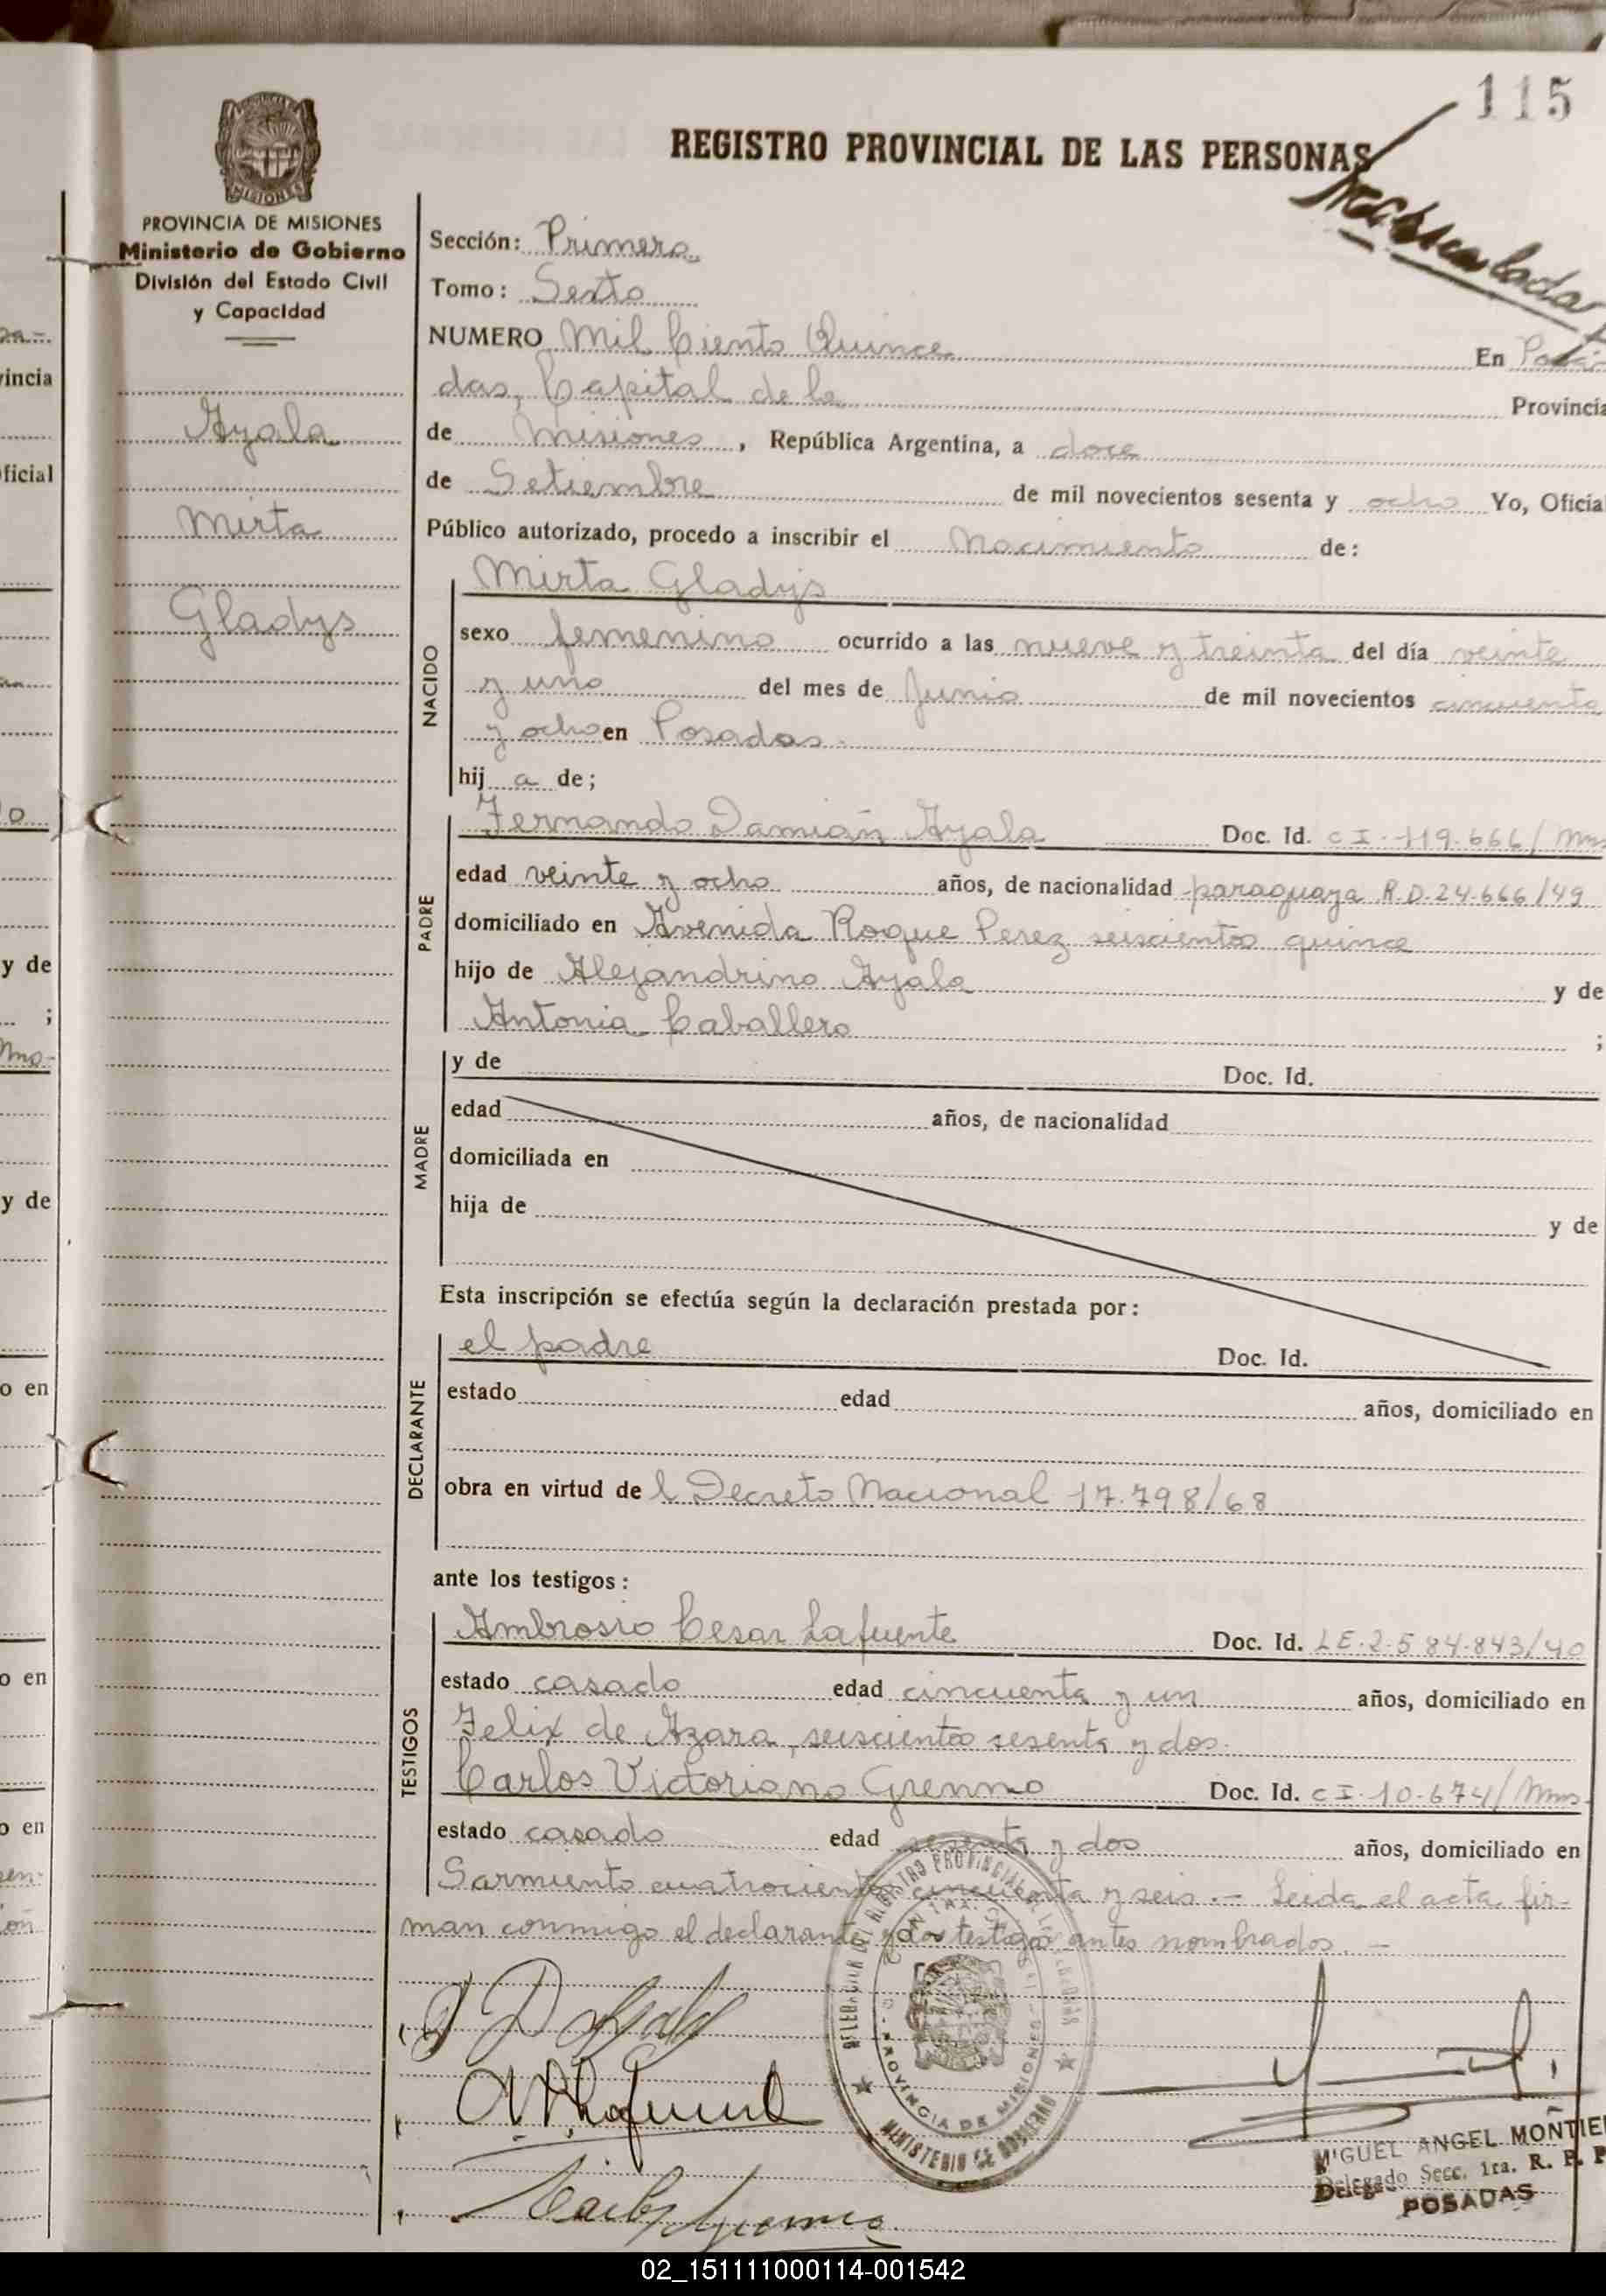 115
REGISTRO PROVINCIAL DE LAS PERSONAS
PROVINCIA DE MISIONES
Ministerio de Gobierno
División del Estado Civil
y Capacidad
Ayala
Mirta
Gladys
Sección: Primera
Tomo: Sexto
NUMERO Mil Ciento Quince En Posa-
das, Capital de la Provincia
de Misiones, República Argentina, a doce
de Setiembre de mil novecientos sesenta y ocho Yo, Oficial
Público autorizado, procedo a inscribir el Nacimiento de:
NACIDO
Mirta Gladys
sexo femenino ocurrido a las nueve y treinta del día veinte
y uno del mes de Junio de mil novecientos cincuenta
y ocho en Posadas.
hij a de;
PADRE
Fernando Damián Ayala Doc. Id. CI-119.666/Mns
edad veinte y ocho años, de nacionalidad paraguaya R.D.24.666/49
domiciliado en Avenida Roque Perez seiscientos quince
hijo de Alejandrino Ayala y de
Antonia Caballero ;
MADRE
y de Doc. Id.
edad años, de nacionalidad
domiciliada en
hija de y de
Esta inscripción se efectúa según la declaración prestada por:
DECLARANTE
el padre Doc. Id.
estado edad años, domiciliado en
obra en virtud de l Decreto Nacional 17.798/68
ante los testigos:
TESTIGOS
Ambrosio Cesar Lafuente Doc. Id. LE.2.584.843/40
estado casado edad cincuenta y un años, domiciliado en
Felix de Azara, seiscientos sesenta y dos.
Carlos Victoriano Grenno Doc. Id. CI-10.674/Mns.
estado casado edad sesenta y dos años, domiciliado en
Sarmiento cuatrocientos cincuenta y seis.- Leida el acta fir-
man conmigo el declarante y los testigos antes nombrados.-
PROVINCIA DE MISIONES
MINISTERIO DE GOBIERNO
MIGUEL ANGEL MONTIE
Delegado Secc. 1ra. R. P. P
POSADAS
02_151111000114-001542